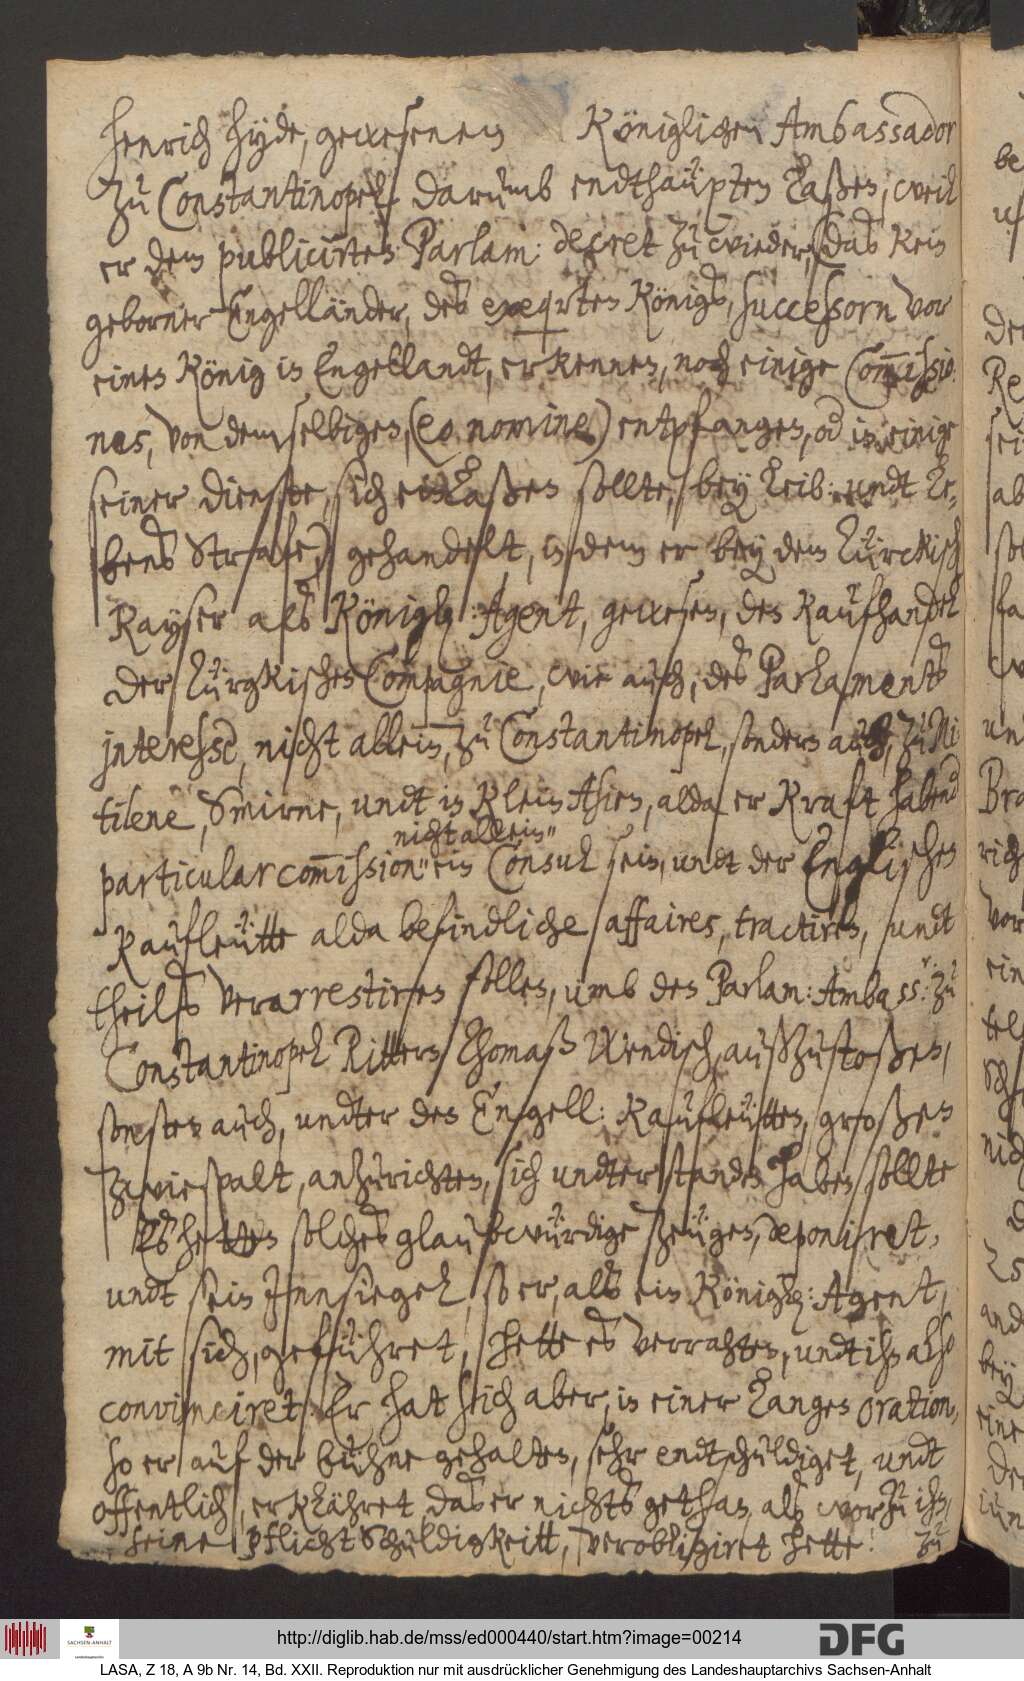 Henrich Hÿde, gewesenem Königlichen Ambassador
zu Constantinopel darumb endthaüpten laßen, weil
er dem publicirten Parlam: decret zu wieder, (das kein
geborner Engelländer, des exeqirten Königs, successorn vor
einen König in Engellandt, erkennen, noch einige Com̄issio:
nes, von demselbigen, (eo nomine) entpfangen, od in einige
seiner dienste, sich einlaßen sollte, bey Leib: undt Le,
bens Strafe,) gehandelt, in dem er bey dem Türckisch
Kayser als Königlr: Agent, gewesen, des Kaufhandel
der Türgkischen Compagnie, wie auch, des Parlaments
interesse, nicht allein, zu Constantinopel, sondern auch, zu Mi
tilene, Smirne, undt in Klein Asien, alda er Kraft habend
nicht allein"
particularcom̄ission" ein Consul sein, undt der Englischen
Kaufleütte alda befindliche affaires, tractiren, undt
theils verarrestiren sollen, umb den Parlam: Ambassr: zu
Constantinopel Rittern Thomaß Wendisch, außzustoßen,
sonsten auch, undter den Engell: Kaufleütten, großen
zwiespalt, anzurichten, sich undterstanden haben sollte
Es hetten solches glaubwürdige zeügen, deponiret,
undt sein Innsiegel, so er, als ein Königlr: Agent,
mit sich, geführet, hette es verrahten, undt ihn also
convinciret. Er hat sich aber, in einer langen oration,
so er auf der bühne gehalten, sehr endtschuldiget, undt
offentlich, erklähret, das er nichts gethan, als worzu ihn,
seine pflicht Schuldigkeitt, verobligiret hette! Zu
http://diglib.hab.de/mss/ed000440/start.htm?image=00214
SACHSEN-ANHALT
DFG
LASA, Z 18, A 9b Nr. 14, Bd. XXII. Reproduktion nur mit ausdrücklicher Genehmigung des Landeshauptarchivs Sachsen-Anhalt